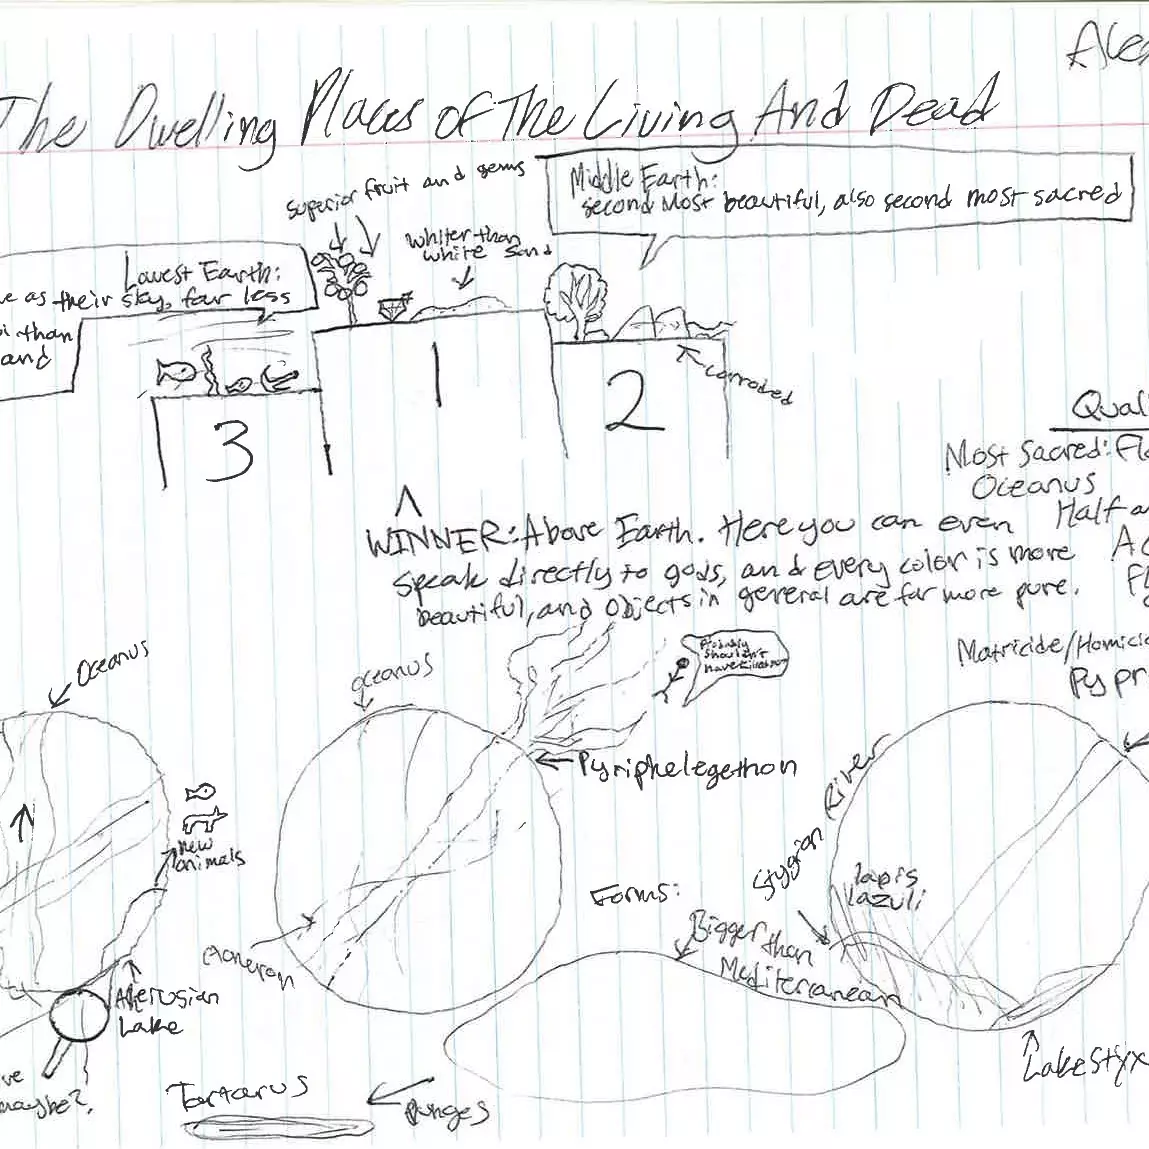 Alex
The Dwelling Places of The Living And Dead
superior fruit and gems
whiter than
white sand
Middle Earth:
second Most beautiful, also second most sacred
Lowest Earth:
as their sky, far less
than
and
3
1
2
corroded
WINNER: Above Earth. Here you can even
speak directly to gods, and every color is more
beautiful, and objects in general are far more pure.
Qual
Most Sacred: Flo
Oceanus
Half a
Ac
Fl
Matricide/Homicid
Pypr
Oceanus
new
animals
Aherusian
Lake
ve
maybe?.
oceanus
Probably
shouldn't
have
Pyriphelegethon
Acheron
Tartarus
Purges
Forms:
Bigger than
Mediterranean
Stygian River
lapis
lazuli
Lake Styx